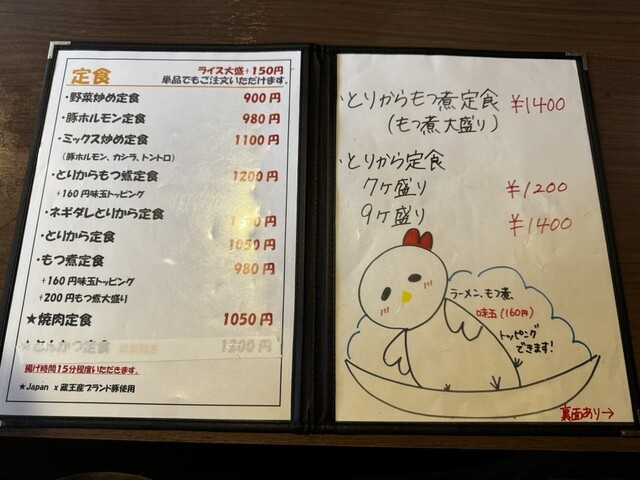 定食
ライス大盛+150円
単品でもご注文いただけます。
・野菜炒め定食 900円
・豚ホルモン定食 980円
・ミックス炒め定食 1100円
(豚ホルモン、カシラ、トントロ)
・とりからもつ煮定食 1200円
+160円味玉トッピング
・ネギダレとりから定食
・とりから定食 1050円
・もつ煮定食 980円
+160円味玉トッピング
+200円もつ煮大盛り
★焼肉定食 1050円
★とんかつ定食 1200円
揚げ時間15分程度いただきます。
★Japan x 蔵王産ブランド豚使用
・とりからもつ煮定食 ¥1400
(もつ煮大盛り)
・とりから定食
7ヶ盛り ¥1200
9ヶ盛り ¥1400
ラーメン、もつ煮
味玉(160円)
トッピング
できます!
裏面あり→